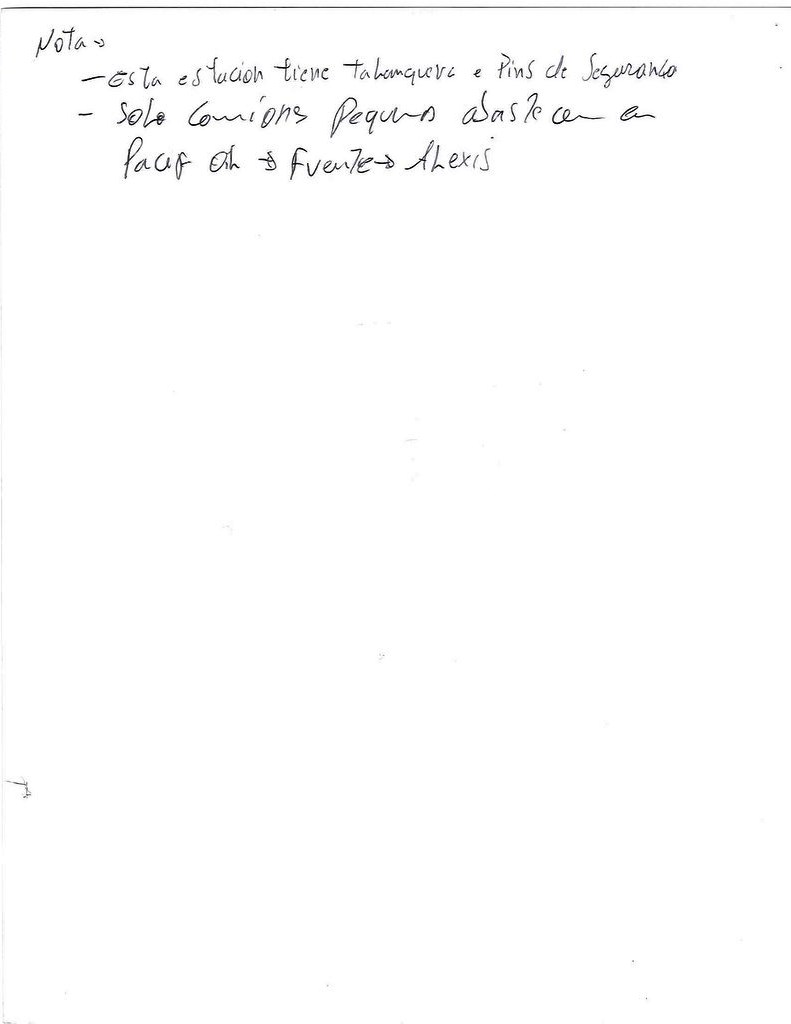 Nota →
- Esta estacion tiene talanquera e Pins de Seguranza
- Solo Camions Pequeños abastecen en
Pacif Oil → Fuente → Alexis